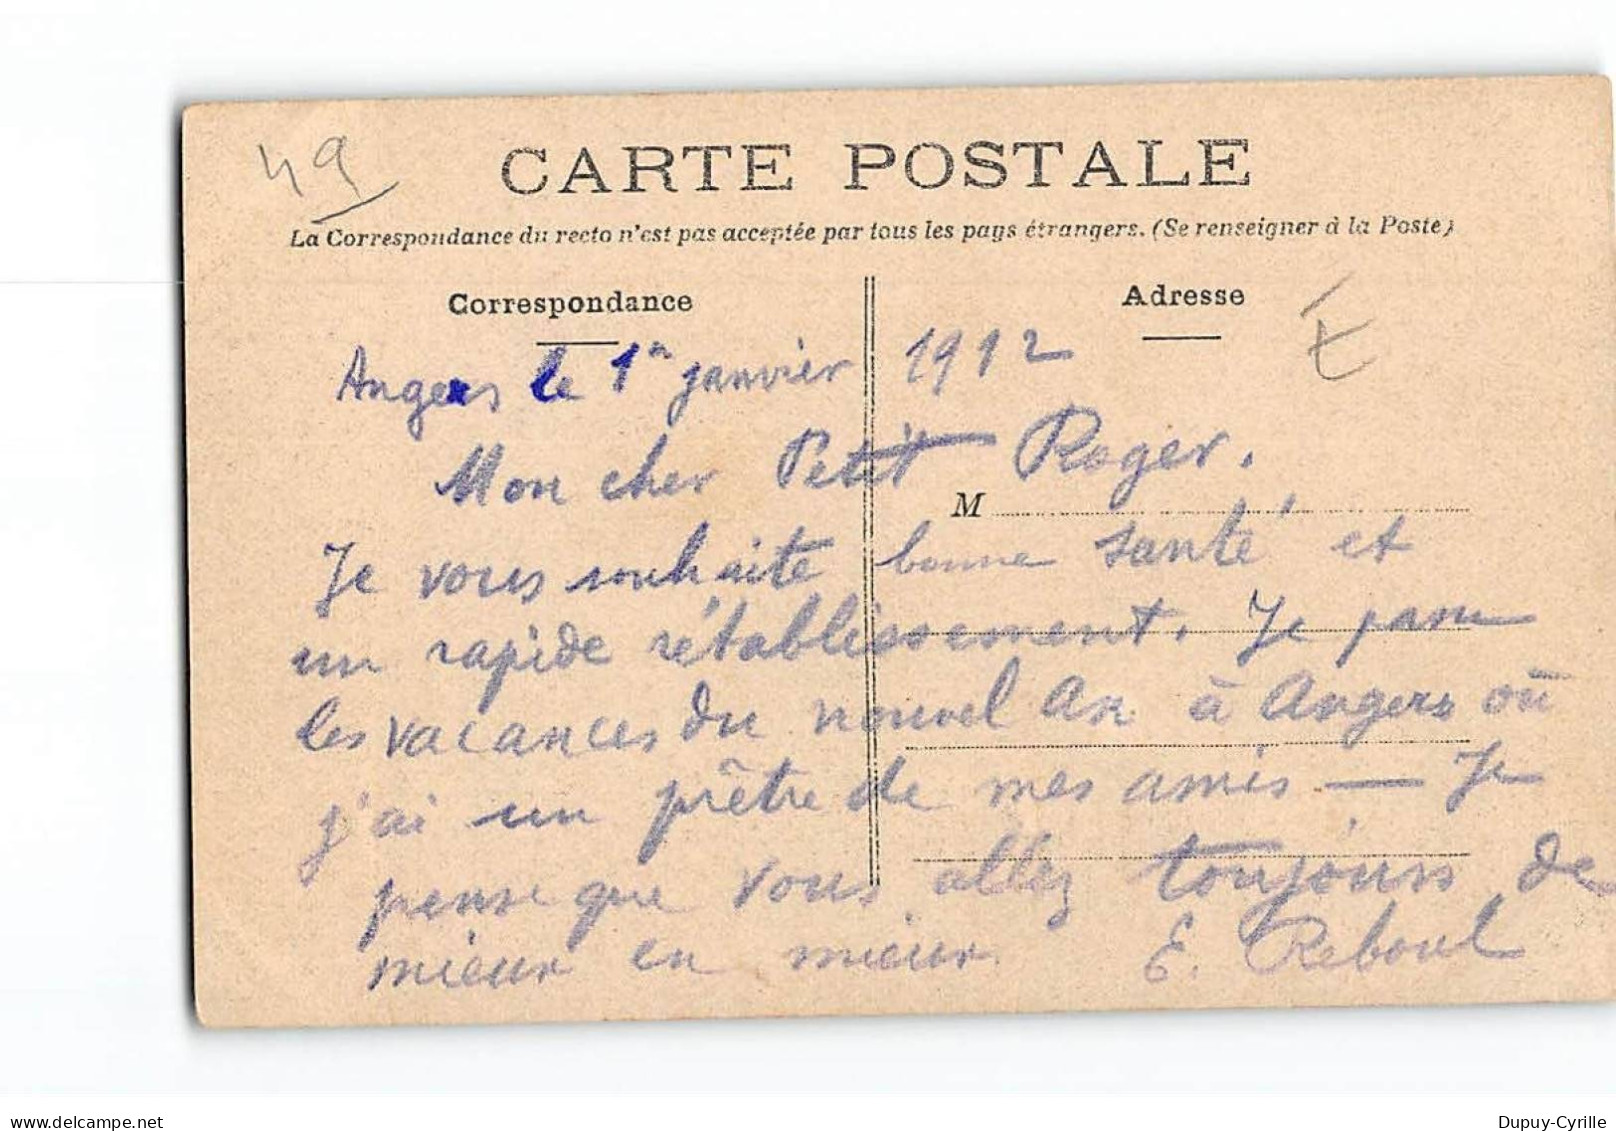 49
CARTE POSTALE
La Correspondance du recto n'est pas acceptée par tous les pays étrangers. (Se renseigner à la Poste)
Correspondance
Adresse
E
Angers le 1er janvier 1912
Mon cher Petit Roger.
M
Je vous souhaite bonne santé et
un rapide rétablissement. Je passe
les vacances du nouvel an à Angers où
j'ai un prêtre de mes amis — Je
pense que vous allez toujours de
mieux en mieux. E. Reboul
delcampe.net
Dupuy-Cyrille